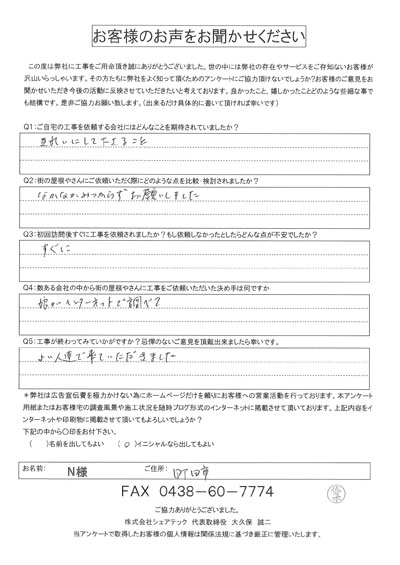 お客様のお声をお聞かせください
この度は弊社に工事をご用命頂き誠にありがとうございました。世の中には弊社の存在やサービスをご存知ないお客様が
沢山いらっしゃいます。その方たちに弊社をよく知って頂くためのアンケートにご協力頂けないでしょうか?お客様のご意見をお
聞かせいただき今後の活動に反映させていただきたいと考えております。良かったこと、嬉しかったことどのような些細な事で
も結構です。是非ご協力お願い致します。(出来るだけ具体的に書いて頂ければ幸いです)
Q1:ご自宅の工事を依頼する会社にはどんなことを期待されていましたか?
きれいにして下さること
Q2:街の屋根やさんにご依頼いただく際にどのような点を比較・検討されましたか?
なかなかみつからずお願いしました
Q3:初回訪問後すぐに工事を依頼されましたか?もし依頼しなかったとしたらどんな点が不安でしたか?
すぐに
Q4:数ある会社の中から街の屋根やさんに工事をご依頼いただいた決め手は何ですか
娘がインターネットで調べて
Q5:工事が終わってみていかがですか?忌憚のないご意見を頂戴出来ましたら幸いです。
よい人達で来ていただきました
*弊社は広告宣伝費を極力かけない為にホームページだけを頼りにお客様への営業活動を行っております。本アンケート
用紙またはお客様宅の調査風景や施工状況を随時ブログ形式のインターネットに掲載させて頂いております。上記内容をイ
ンターネットや印刷物に掲載させて頂いてもよろしいでしょうか?
下記の中から〇印をお付け下さい。
( )名前を出してもよい (○)イニシャルなら出してもよい
お名前: N様 ご住所: 町田市
FAX 0438-60-7774
ご協力ありがとうございました。
株式会社シェアテック 代表取締役 大久保 誠二
当アンケートで取得したお客様の個人情報は関係法規に基づき厳正に管理いたします。